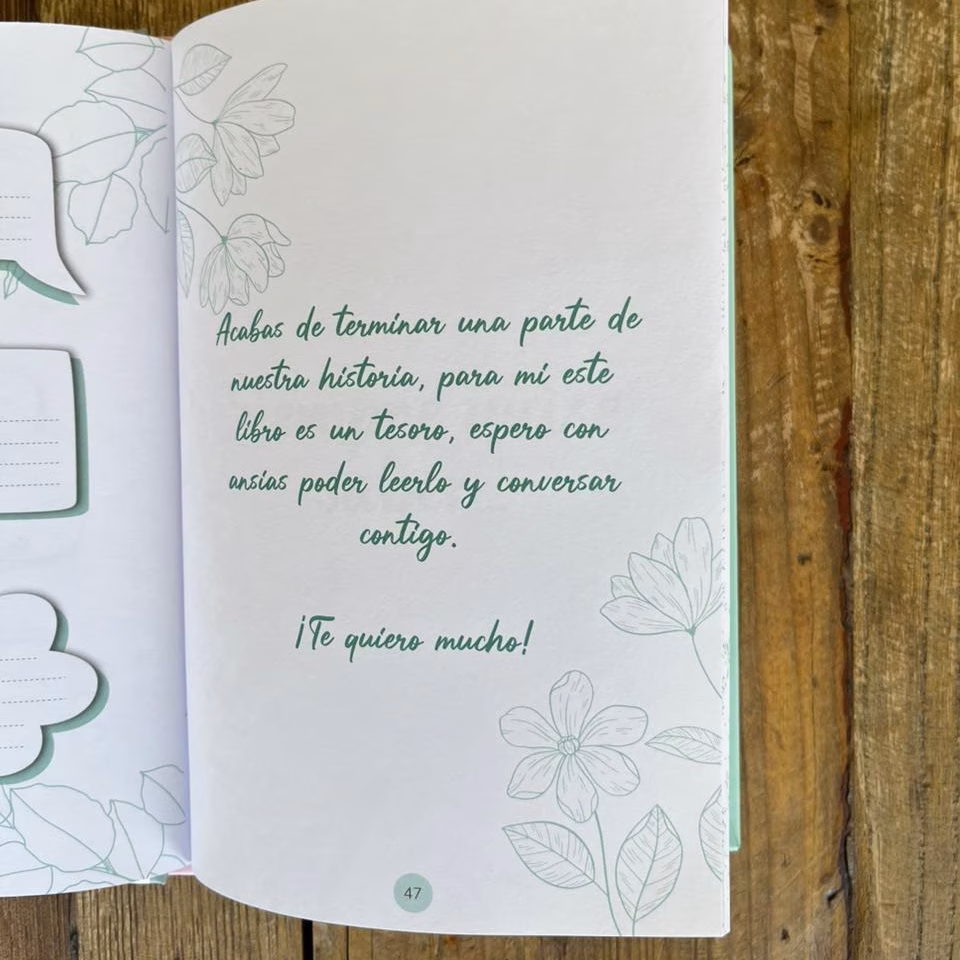 Acabas de terminar una parte de
nuestra historia, para mí este
libro es un tesoro, espero con
ansias poder leerlo y conversar
contigo.
¡Te quiero mucho!
47